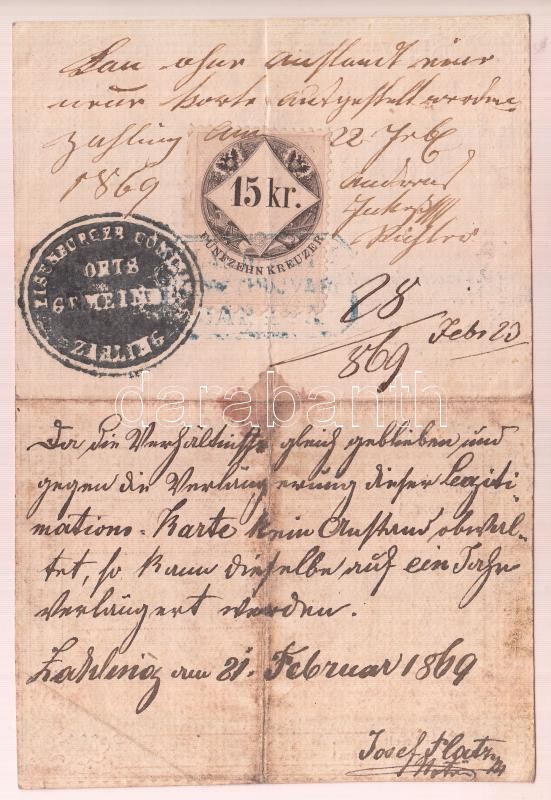 Kan ohne Anstandt eine
neue Karte ausgestellt werden
Zahling am 22 Feb
1869
Andreas
Richter
15 kr.
FÜNFZEHN KREUZER
EISENBURGER COMITAT
ORTS
GEMEINDE
ZAHLING
28
869 Febr 23
darabanth
Da die Verhältnisse gleich geblieben und
gegen die Verlängerung dieser Legiti
mations-Karte kein Anstand obwal-
tet, so kann dieselbe auf ein Jahr
verlängert werden.
Zahling am 21. Februar 1869
Josef Platz
Notär